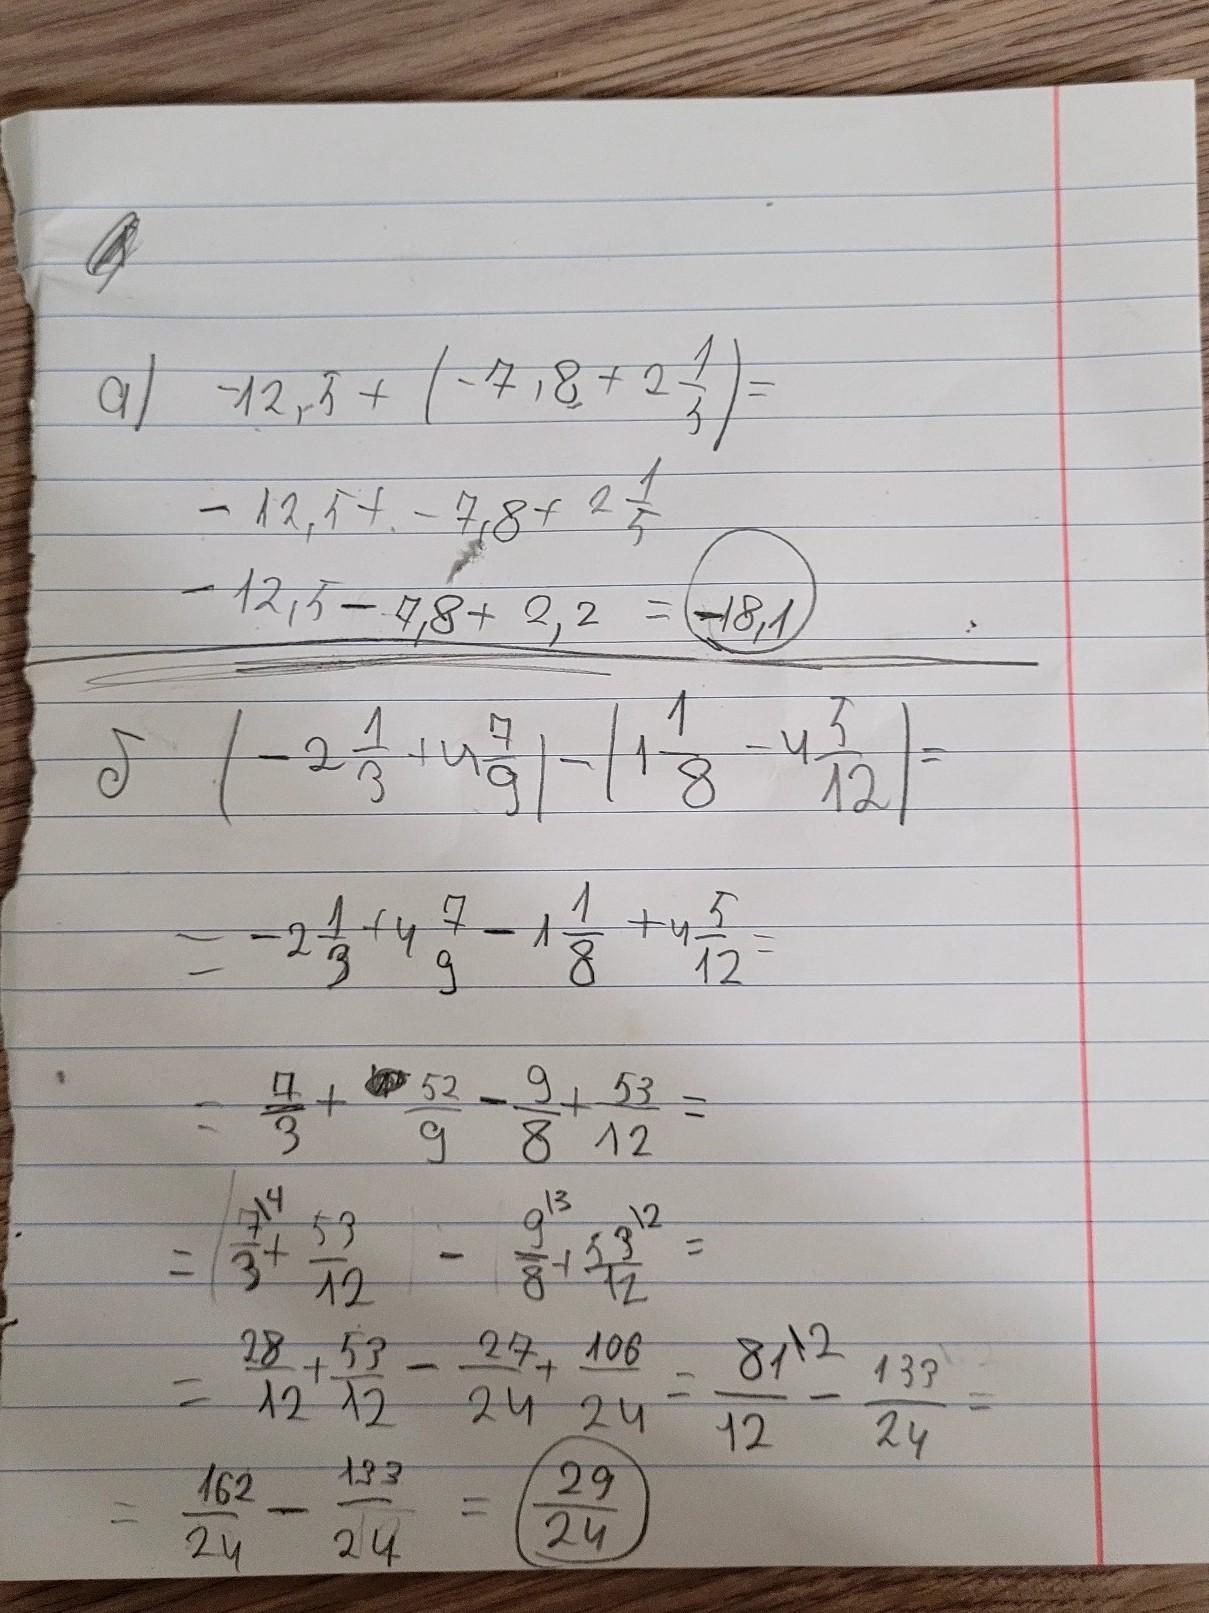 а) -12,5 + (-7,8 + 2 1/5) =
- 12,5 + - 7,8 + 2 1/5
- 12,5 - 7,8 + 2,2 = -18,1
б (-2 1/3 + 4 7/9) - (1 1/8 - 4 5/12) =
= -2 1/3 + 4 7/9 - 1 1/8 + 4 5/12 =
= 7/3 + 52/9 - 9/8 + 53/12 =
= (7\4/3 + 53/12) - (9\3/8 + 53\2/12 =
= 28/12 + 53/12 - 27/24 + 106/24 = 81\2/12 - 133/24 =
= 162/24 - 133/24 = 29/24